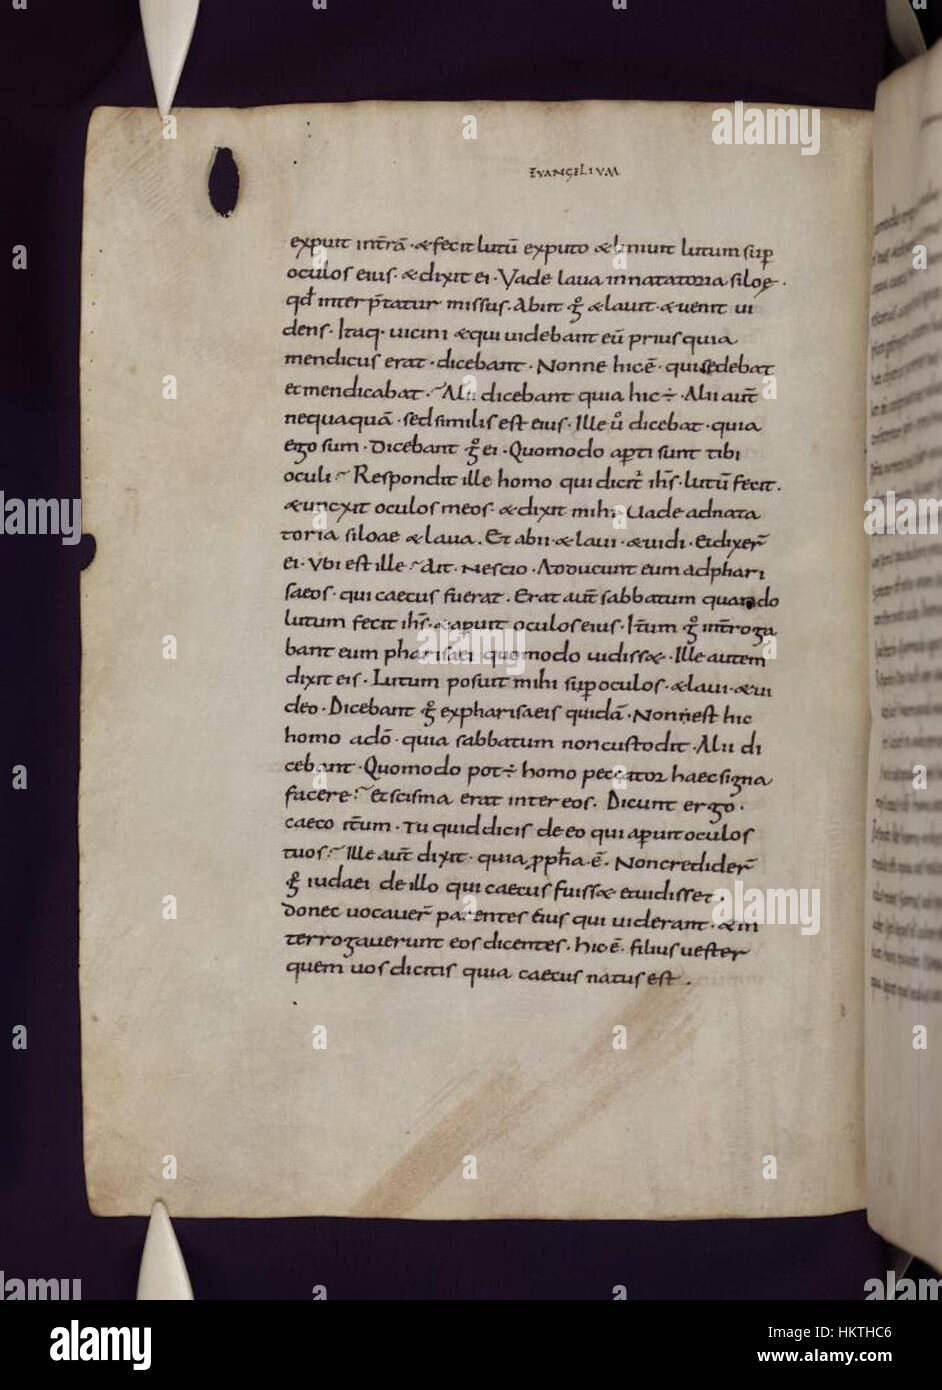 EVANGELIVM
expuit int̄rā · & fecit lutū ex puto & liniuit lutum sup̄
oculos eius · & dixit ei · Vade laua in natatoria siloę ·
qd̄ interp̄tatur missus · Abiit g̊ & lauit · & uenit ui
dens · Itaq· uicini & qui uidebant eū prius quia
mendicus erat · dicebant · Nonne hic ē · qui sedebat
et mendicabat · Alii dicebant quia hic ÷ · Alii aut̄
nequaquā · sed similis est eius · Ille ů dicebat · quia
ego sum · Dicebant g̊ ei · Quomodo apti sunt tibi
oculi Respondit ille homo qui dicit᷒ ih̄s · lutū fecit ·
& uncxit oculos meos · & dixit mihi Uade ad nata
toria siloae & laua . Et abii · & laui · & uidi · Et dixer̄
ei · Vbi est ille Ait · Nescio · Adducunt eum ad phari
saeos · qui caecus fuerat . Erat aut̄ sabbatum quando
lutum fecit ih̄s · & apuit oculos eius · It̄um g̊ int̄roga
bant eum pharisaei quomodo uidiss& · Ille autem
dixit eis · Lutum posuit mihi sup oculos · & laui · & ui
deo · Dicebant g̊ ex pharisaeis quidā · Non est hic
homo a dō · quia sabbatum non custodit · Alii di
cebant · Quomodo pot÷ homo peccator haec signa
facere et scisma erat inter eos . Dicunt ergo ·
caeco it̄um · Tu quid dicis de eo qui apuit oculos
tuos Ille aut̄ dixit · quia pph̄a ē · Non credider̄
g̊ iudaei de illo qui caecus fuiss& et uidisset ·
donec uocauer̄ parentes eius qui uiderant · & in
terrogauerunt eos dicentes · hic ē · filius uester
quem uos dicitis quia caecus natus est .
alamy
Image ID: HKTHC6
www.alamy.com